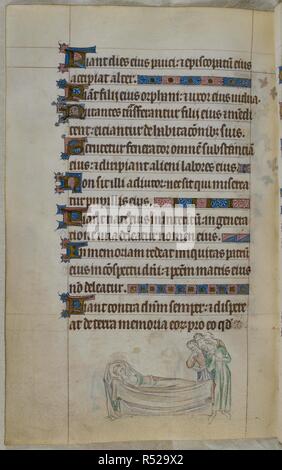 Fiant dies eius pauci: ⁊ episcopatū eius
accipiat alter.
Fiant filij eius orphani: ⁊ uxor eius uidua.
Nutantes trāsferantur filij eius ⁊ mendi
cent: ⁊ eiciantur de habitacōnibꝫ suis.
Scrutetur fenerator omnē substanciam
eius: ⁊ diripiant alieni labores eius
Non sit illi adiutor: nec sit qui misera
tur pupillis eius.
Fiant nati eius in interitū: in genera
tione una deleatur nomen eius.
In memoriam redeat iniquitas patrum
eius in cōspectu dn̄i: ⁊ pctm̄ matris eius
nō deleatur.
Fiant contra dn̄m semper: ⁊ dispere
at de terra memoria eorꝝ: pro eo qd̄
R529X2